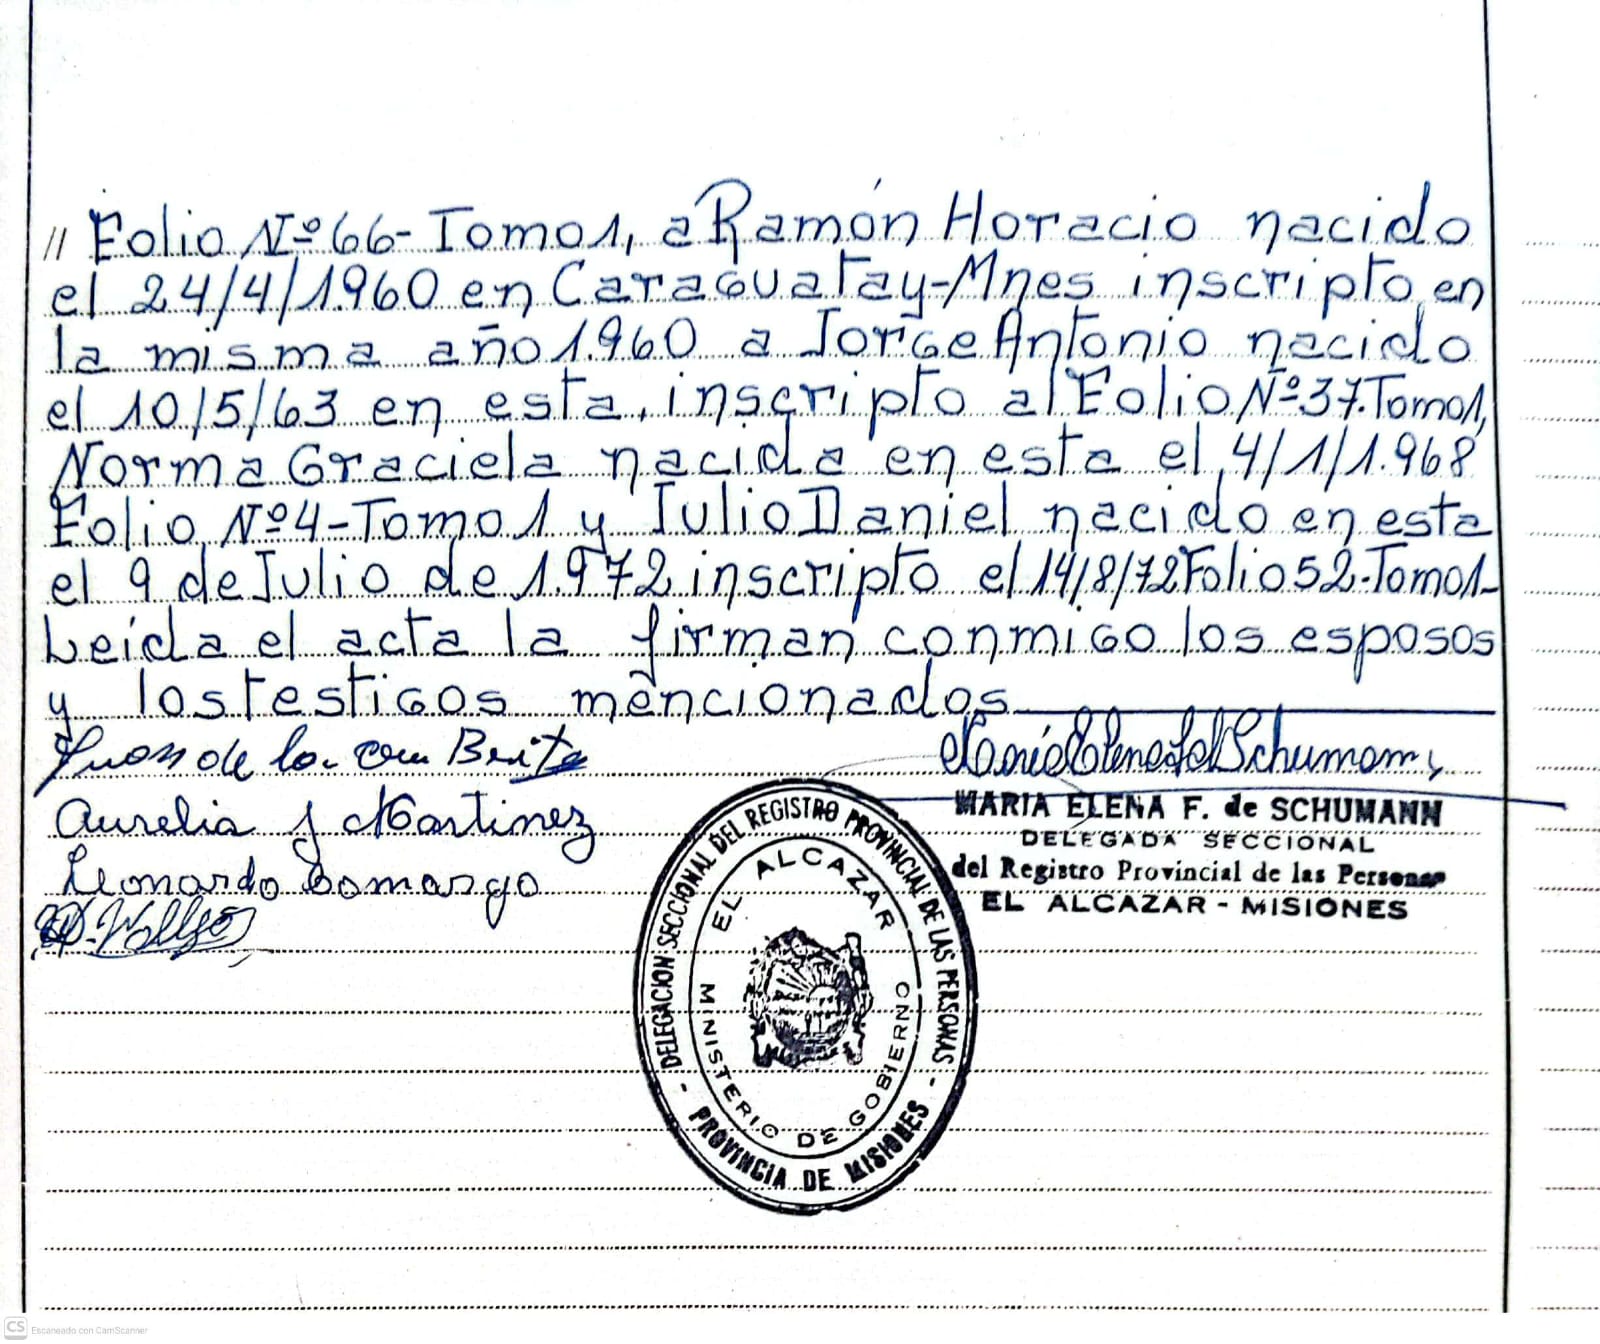 // Folio Nº 66-Tomo 1, a Ramón Horacio nacido
el 24/4/1.960 en Caraguatay-Mnes inscripto en
la misma año 1.960 a Jorge Antonio nacido
el 10/5/63 en esta, inscripto al Folio Nº 37. Tomo 1,
Norma Graciela nacida en esta el 4/1/1.968
Folio Nº 4-Tomo 1 y Julio Daniel nacido en esta
el 9 de Julio de 1.972 inscripto el 14/8/72 Folio 52-Tomo 1-
Leída el acta la firman conmigo los esposos
y los testigos mencionados
Juan de la Brite
Maria Elena F d Schumann
Aurelia J Martinez
Leonardo Comargo
MARIA ELENA F. de SCHUMANN
DELEGADA SECCIONAL
del Registro Provincial de las Personas
EL ALCAZAR - MISIONES
DELEGACION SECCIONAL DEL REGISTRO PROVINCIAL DE LAS PERSONAS
- PROVINCIA DE MISIONES -
EL ALCAZAR
MINISTERIO DE GOBIERNO
CS Escaneado con CamScanner